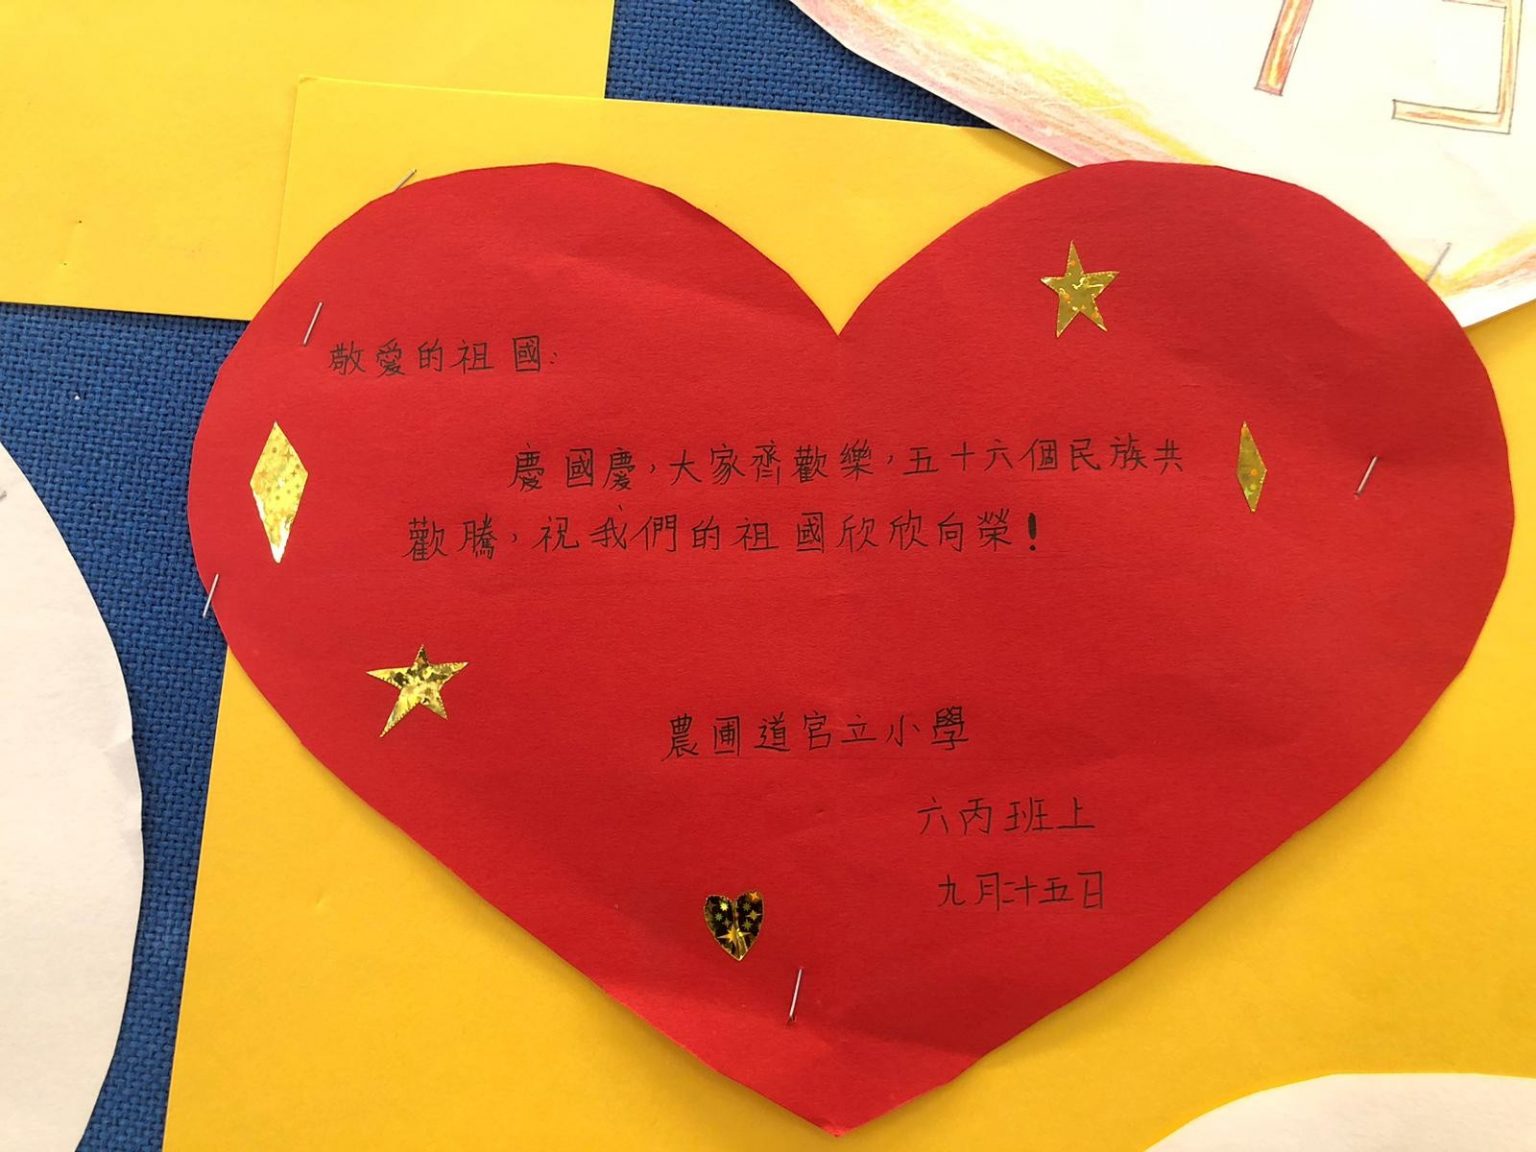 敬愛的祖國：
慶國慶，大家齊歡樂，五十六個民族共
歡騰，祝我們的祖國欣欣向榮！
農圃道官立小學
六丙班上
九月二十五日